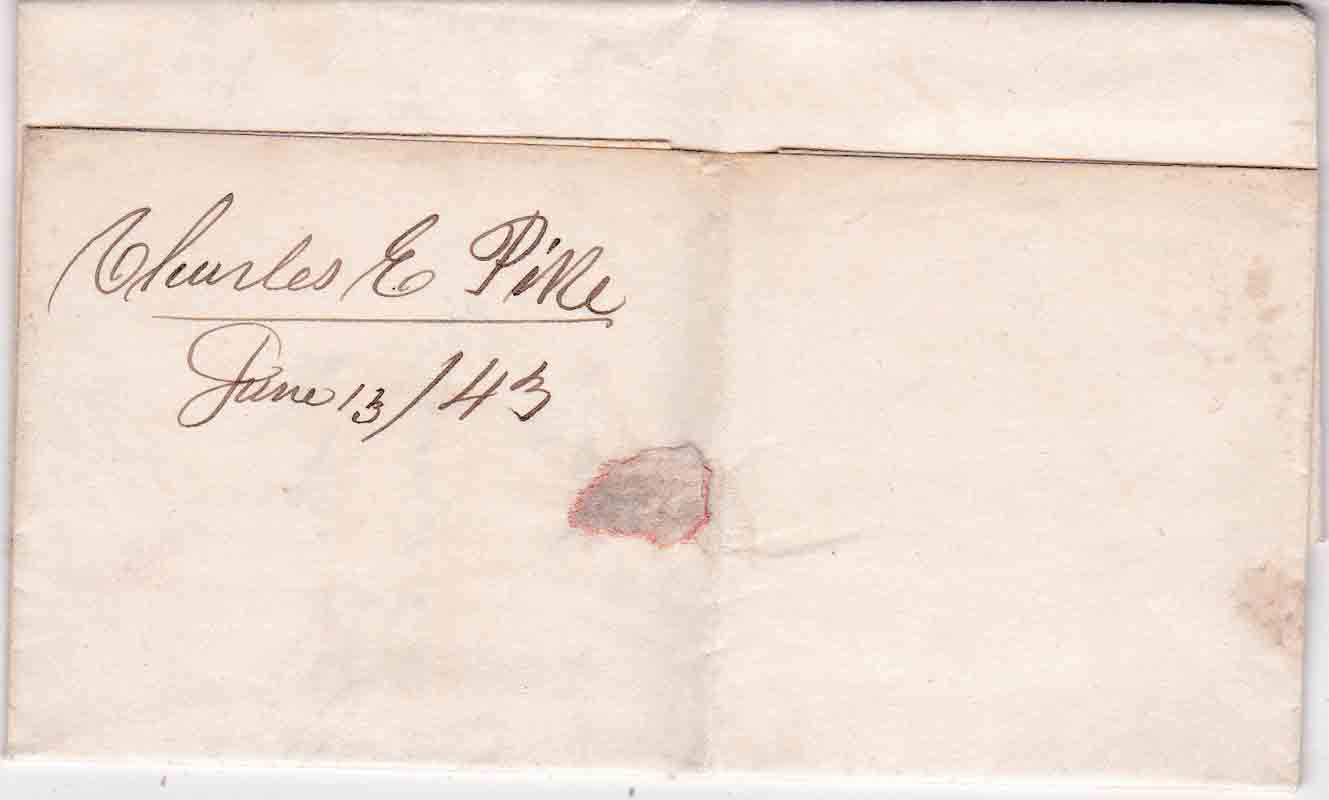 Charles E Pike
June 13/43